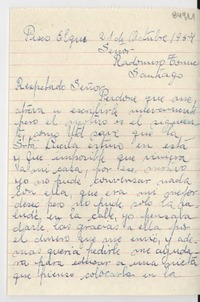 Pisco Elqui 21 de Octubre/1954
Señor
Radomiro Tomic
Santiago
Respetado Señor
Perdone que me
atreva a escribirle nuevamente
pero el motivo es el siguiente
como Ud. supo que la
Srta Lucila estuvo en esta
y fue imposible que viniera
a mi casa, por ese motivo
yo no pude conversar nada
con ella que era mi mayor
deseo pero no pude solo la sa
ludé en la calle, yo pensaba
darle las gracias a ella por
el dinero que me envió, y ade
mas queria pedirle me
para educar a una nieta
que pienso colocarla en la